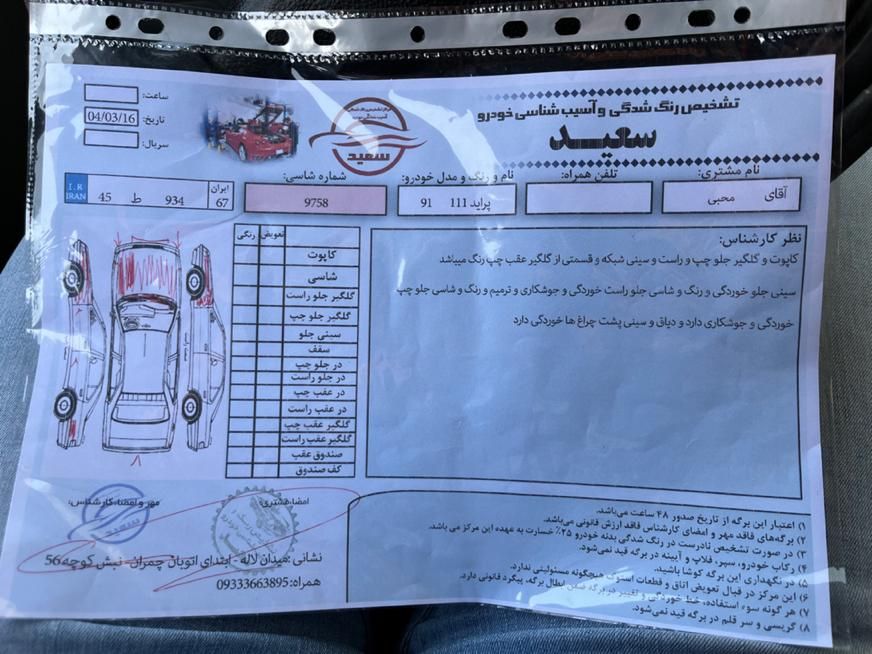 تشخیص رنگ شدگی و آسیب شناسی خودرو
سعید
سعید
ساعت:
تاریخ: 04/03/16
سریال:
نام مشتری: تلفن همراه: نام و رنگ و مدل خودرو: شماره شاسی:
آقای محبی
پراید 111 91
9758
ایران 67 934 ط 45 I.R IRAN
نظر کارشناس:
کاپوت و گلگیر جلو چپ و راست و سینی شبکه و قسمتی از گلگیر عقب چپ رنگ میباشد
سینی جلو خوردگی و رنگ و شاسی جلو راست خوردگی و جوشکاری و ترمیم و رنگ و شاسی جلو چپ
خوردگی و جوشکاری دارد و دیاق و سینی پشت چراغ ها خوردگی دارد
تعویض رنگی
کاپوت
شاسی
گلگیر جلو راست
گلگیر جلو چپ
سینی جلو
سقف
در جلو چپ
در جلو راست
در عقب چپ
در عقب راست
گلگیر عقب چپ
گلگیر عقب راست
صندوق عقب
کف صندوق
۱) اعتبار این برگه از تاریخ صدور ۴۸ ساعت می‌باشد.
۲) برگه‌های فاقد مهر و امضای کارشناس فاقد ارزش قانونی می‌باشد.
۳) در صورت تشخیص نادرست در رنگ شدگی بدنه خودرو ۲۵٪ خسارت به عهده این مرکز می باشد.
۴) رکاب خودرو، سپر، فلاپ و آیینه در برگه قید نمی‌شود.
۵) در نگهداری این برگه کوشا باشید.
۶) این مرکز در قبال تعویض اتاق و قطعات استوک هیچگونه مسئولیتی ندارد.
۷) هر گونه سوء استفاده، خط خوردگی و تغییر در برگه ضمن ابطال برگه، پیگرد قانونی دارد.
۸) گریسی و سر قلم در برگه قید نمی‌شود.
امضا مشتری:
مهر و امضا کارشناس:
سعید
نشانی: میدان لاله - ابتدای اتوبان چمران - نبش کوچه 56
همراه: 09333663895